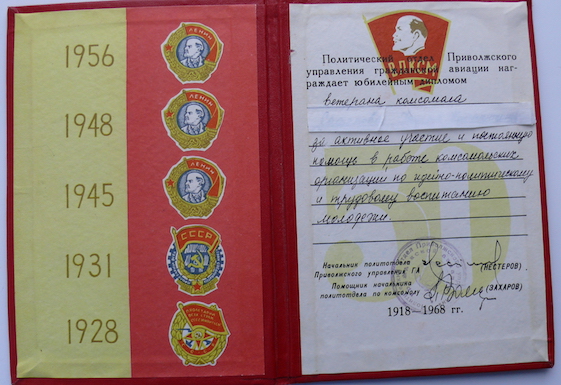 1956
ЛЕНИН
1948
ЛЕНИН
1945
ЛЕНИН
1931
СССР
1928
ВЛКСМ
Политический отдел Приволжского
управления гражданской авиации наг-
раждает юбилейным дипломом
ветерана комсомола
за активное участие и постоянную
помощь в работе комсомольских
организации по идейно-политическому
и трудовому воспитанию
молодежи.
50
Начальник политотдела
Приволжского управления ГА (НЕСТЕРОВ)
Помощник начальника
политотдела по комсомолу (ЗАХАРОВ)
1918—1968 гг.